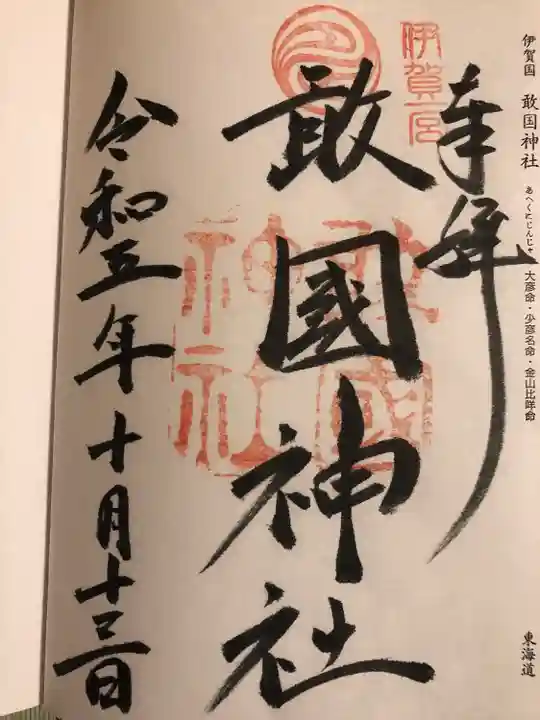 伊賀国 敢国神社 あへくにじんじゃ 大彦命・少彦名命・金山比咩命
東海道
伊賀一宮
奉拝
敢國神社
敢國神社
令和五年十月十三日